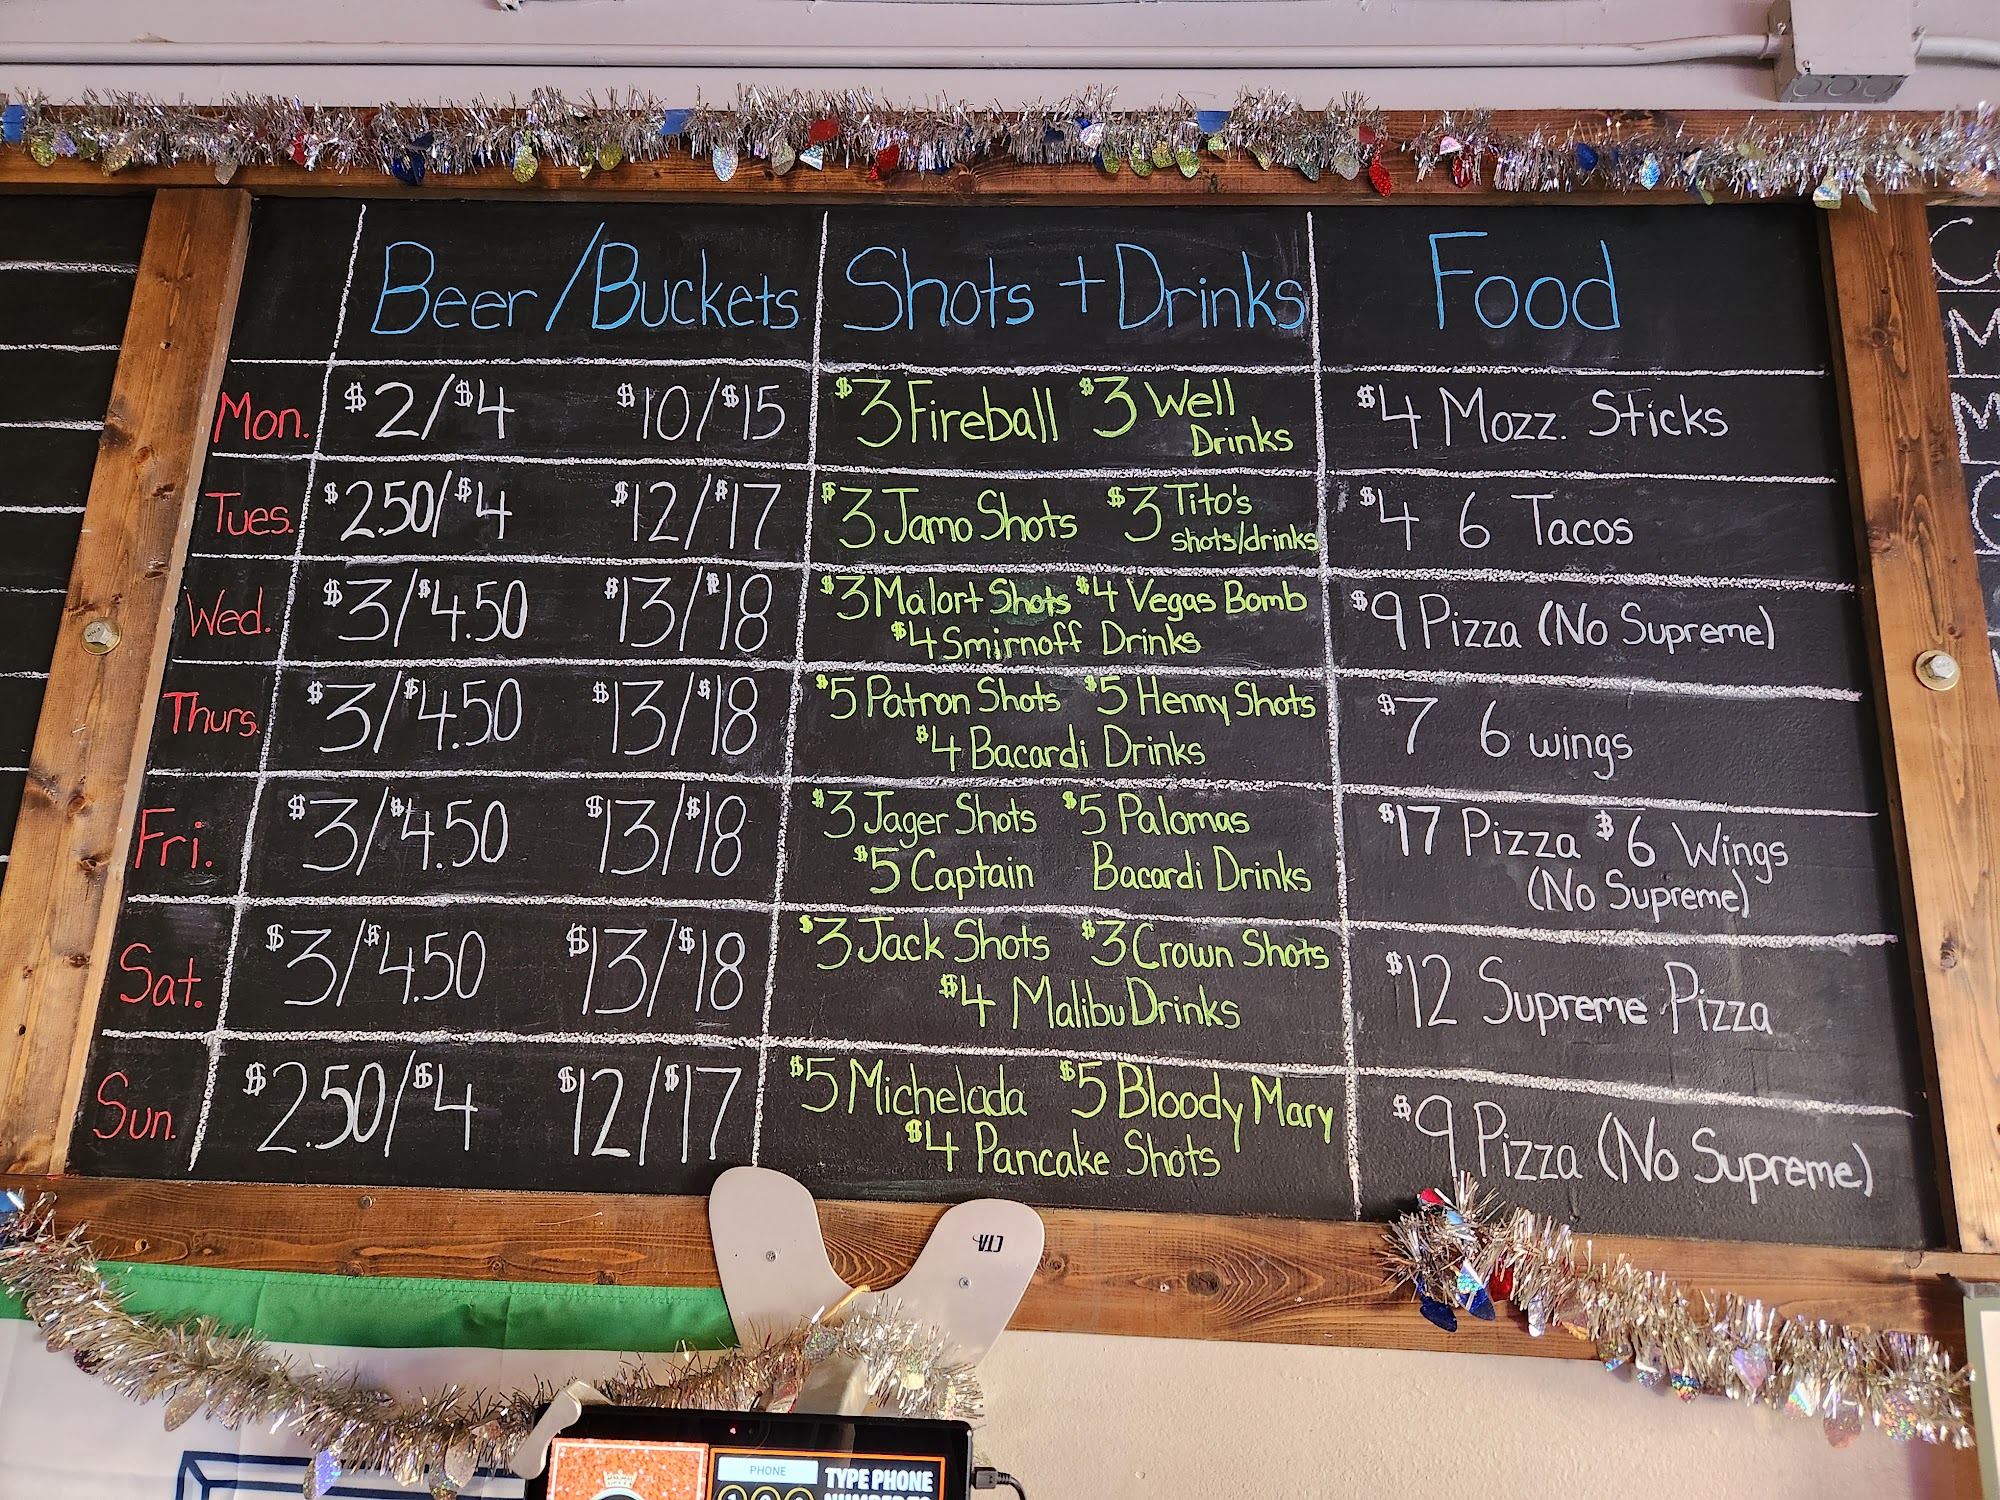 Beer/Buckets Shots + Drinks Food
Mon. $2/$4 $10/$15 $3 Fireball $3 Well Drinks $4 Mozz. Sticks
Tues. $2.50/$4 $12/$17 $3 Jamo Shots $3 Tito's shots/drinks $4 6 Tacos
Wed. $3/$4.50 $13/$18 $3 Malort Shots $4 Vegas Bomb $9 Pizza (No Supreme)
$4 Smirnoff Drinks
Thurs. $3/$4.50 $13/$18 $5 Patron Shots $5 Henny Shots $7 6 wings
$4 Bacardi Drinks
Fri. $3/$4.50 $13/$18 $3 Jager Shots $5 Palomas $17 Pizza $6 Wings
$5 Captain Bacardi Drinks (No Supreme)
Sat. $3/$4.50 $13/$18 $3 Jack Shots $3 Crown Shots $12 Supreme Pizza
$4 Malibu Drinks
Sun. $2.50/$4 $12/$17 $5 Michelada $5 Bloody Mary $9 Pizza (No Supreme)
$4 Pancake Shots
CTA
PHONE TYPE PHONE